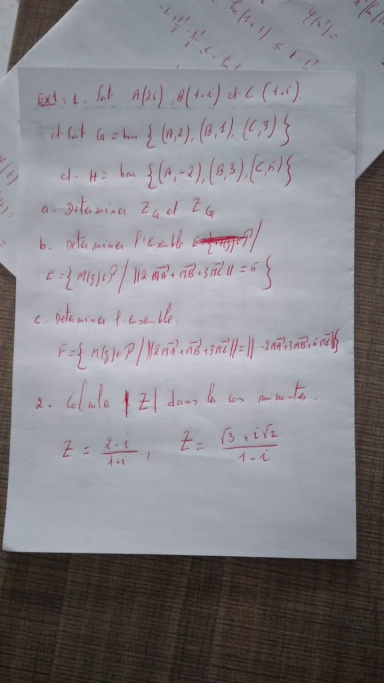 Ex1: 1. Soit A(2i), B(1-i) et C(1+i).
et soit G = bar {(A,2), (B,1), (C,3)}
et H = bar {(A,-2), (B,3), (C,5)}
a. Determiner Z_G et Z_G
b. Déterminer l'ensemble
E = {M(z)∈P / ||2MA + MB + 3MC|| = 5}
c. Determiner l'ensemble.
F = {M(z)∈P / ||2MA + MB + 3MC|| = || -2MA + 3MB + 5MC||}
2. Calculer |Z| dans les cas suivantes.
Z = (2-i)/(1+i) ; Z = (√3 + i√2)/(1-i)